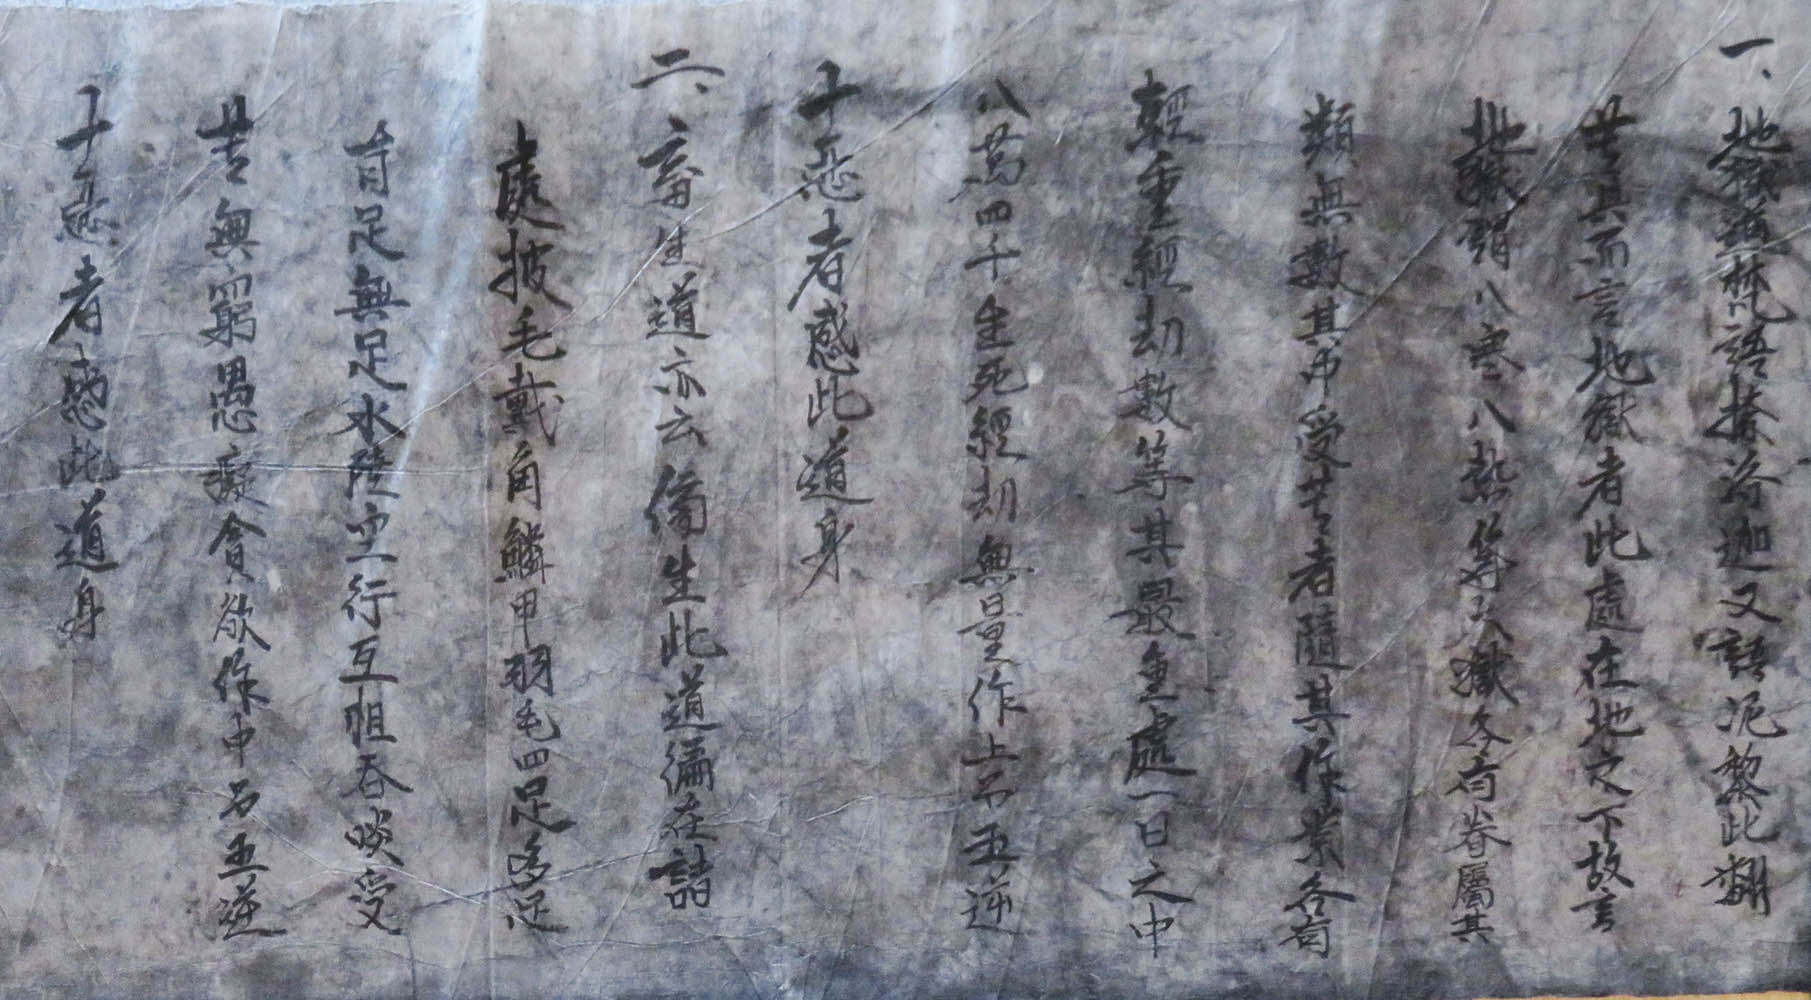 一、地獄道梵語捺洛迦又語泥黎此翻
苦具而言地獄者此處在地之下故言
地獄謂八寒八熱等大獄各有眷屬其
類無數其中受苦者隨其作業各有
輕重經劫數等其最重處一日之中
八萬四千生死經劫無量作上品五逆
十惡者感此道身
二、畜生道亦云傍生此道徧在諸
處披毛戴角鱗甲羽毛四足多足
有足無足水陸空行互相吞啖受
苦無窮愚癡貪欲作中品五逆
十惡者感此道身